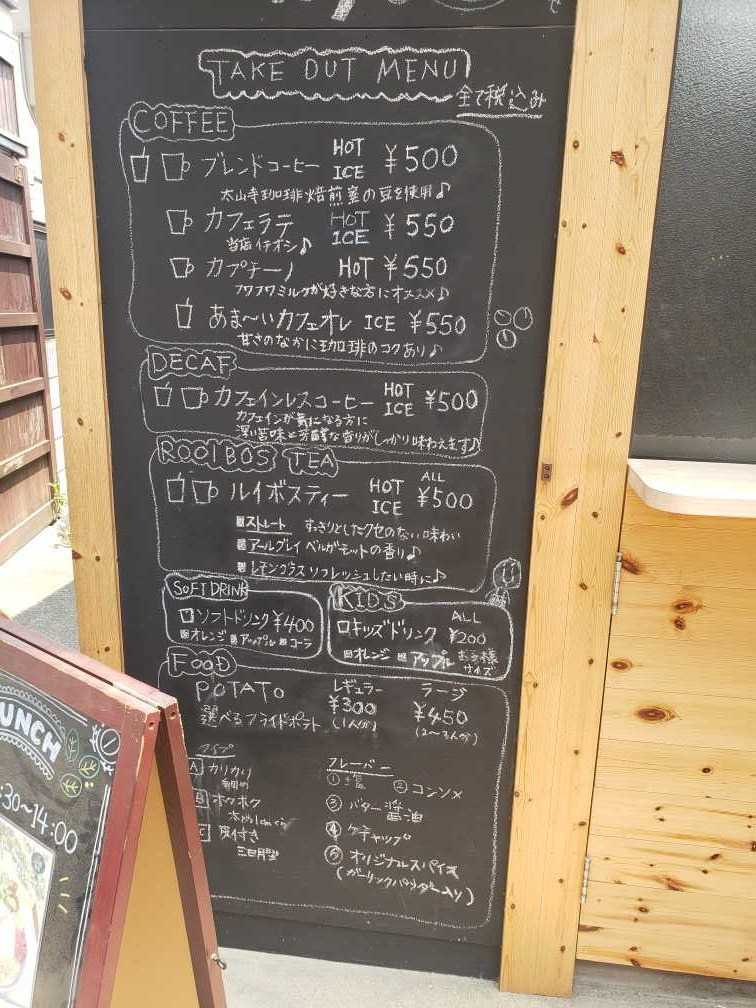 TAKE OUT MENU
全て税込み
COFFEE
ブレンドコーヒー HOT ICE ¥500
太山寺珈琲焙煎室の豆を使用♪
カフェラテ HOT ICE ¥550
当店イチオシ♪
カプチーノ HOT ¥550
フワフワミルクが好きな方にオススメ♪
あま〜いカフェオレ ICE ¥550
甘さのなかに珈琲のコクあり♪
DECAF
カフェインレスコーヒー HOT ICE ¥500
カフェインが気になる方に
深い苦味と芳醇な香りがしっかり味わえます♪
ROOIBOS TEA
ルイボスティー HOT ICE ALL ¥500
ストレート すっきりとしたクセのない味わい
アールグレイ ベルガモットの香り♪
レモングラス リフレッシュしたい時に♪
SOFT DRINK
ソフトドリンク ¥400
オレンジ アップル コーラ
KIDS
キッズドリンク ALL ¥200
オレンジ アップル お子様サイズ
FOOD
POTATO レギュラー ラージ
¥300 ¥450
選べるフライドポテト (1人分) (2〜3人分)
タイプ フレーバー
A カリカリ
B ホクホク
C 皮付き
三日月型
① 塩 ② コンソメ
③ バター醤油
④ ケチャップ
⑤ オリジナルスパイス
(ガーリックパウダー入り)
UNCH
:30〜14:00